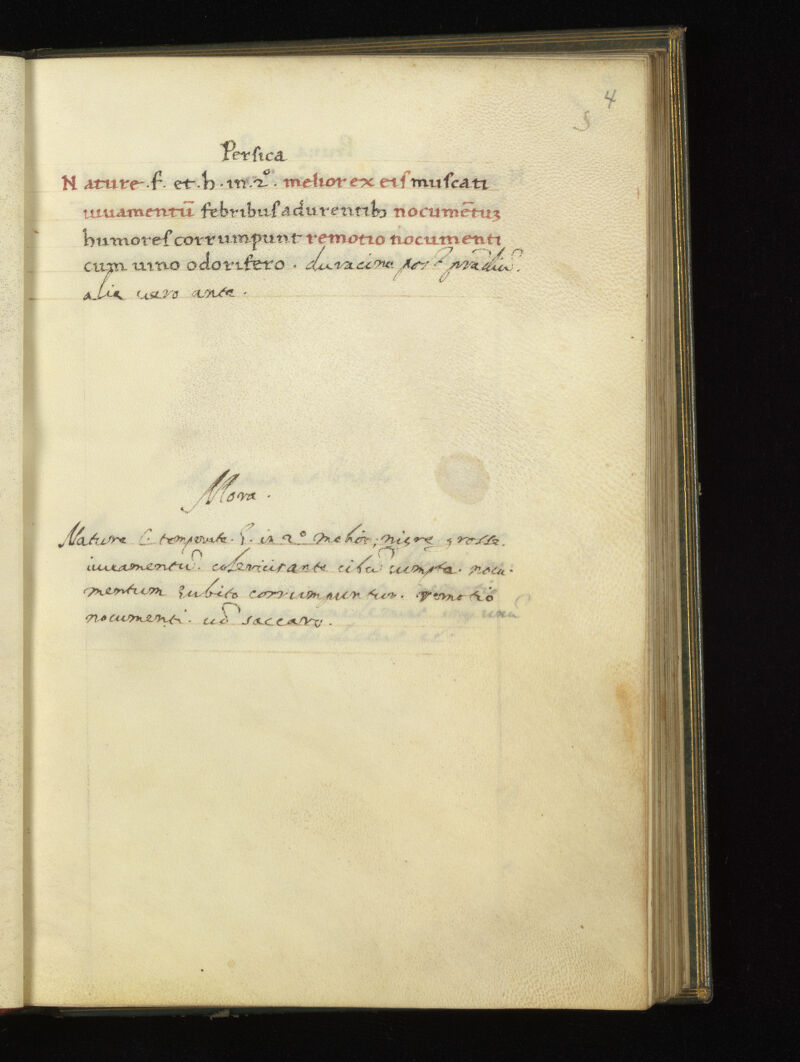 4
S
Persica
Nature .f. et .h. in .2°. melior ex eis muscati
iuuamentū febribus adurentibꝫ nocumētuꝫ
humores corrumpunt remotio nocumenti
cum uino odorifero . duracina post prādiū.
alia uero ante .
Mora .
Nature C. temperate. S. in 2° melior; nigre grosse.
iuuamentū. ante cibū sumpta . nocu-
mentum subito corrumpuntur. remotio
nocumenti . saccaro .